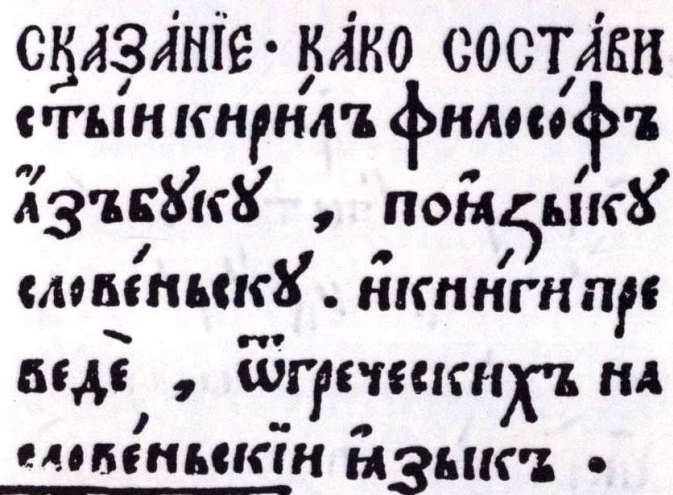 СКАЗА́НЇЕ · КА́КО СОСТА́ВИ
ст҃ы́и кири́лъ филосо́фъ
а҆́зъбꙋкꙋ , поꙗ҆зы́кꙋ
слове́ньскꙋ . и҆кни́ги пре
ведѐ , ѿгреческихъ на
слове́ньскїи ꙗ҆зыкъ .